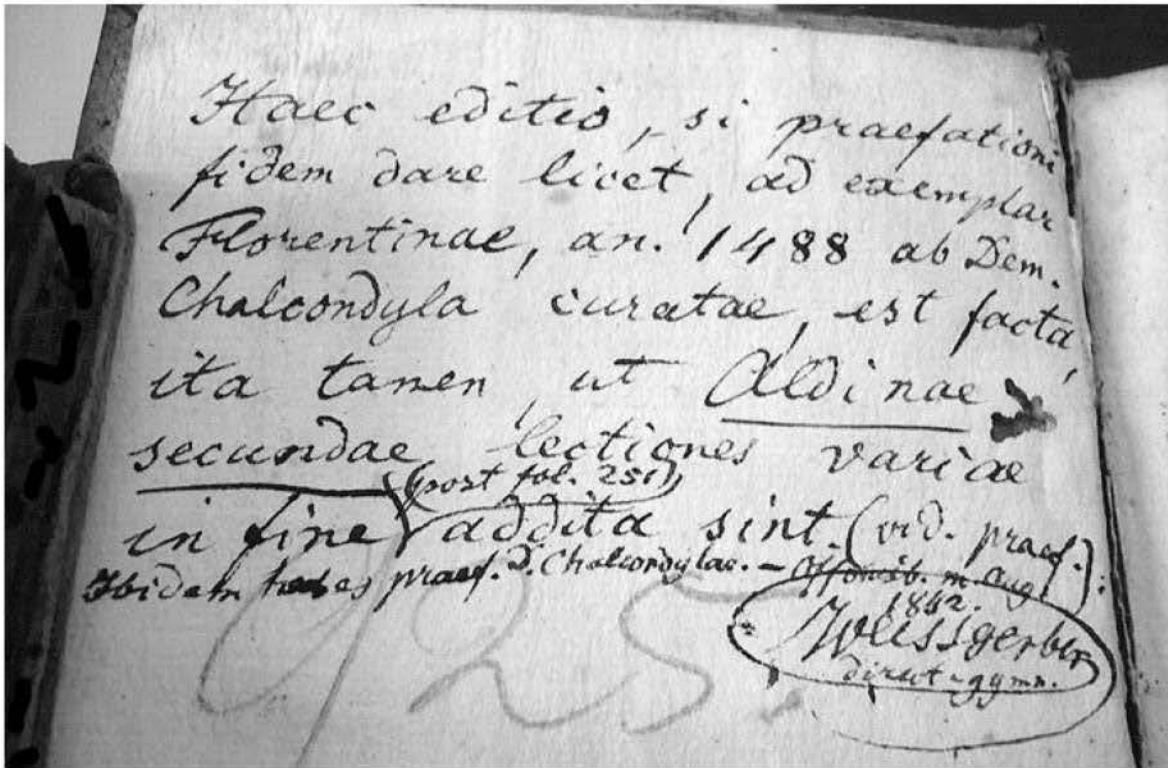 Haec editio, si praefationi
fidem dare licet, ad exemplar
Florentinae, an. 1488 ab Dem.
Chalcondyla curatae, est facta,
ita tamen, ut Aldinae
secundae lectiones variae
(post fol. 251)
in fine addita sint. (vid. praef.)
Ibidem habes praef. D. Chalcondylae. – Offonisb. m. Aug.
1842.
Weissgerber
direct. gymn.
925.